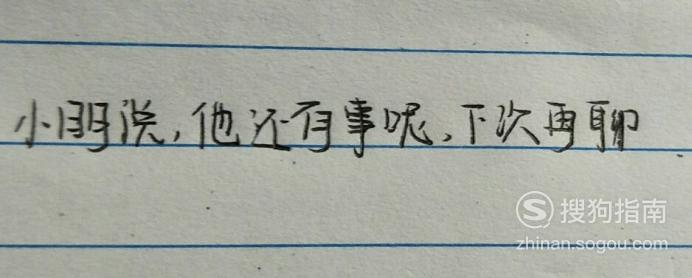 小明说,他还有事呢,下次再聊
搜狗指南
zhinan.sogou.com